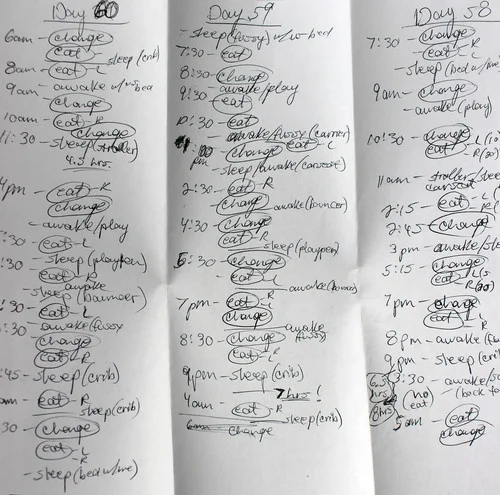 Day 60
6am - change
eat
- sleep (crib)
8am - eat - L
9am - awake w/w-bed
change
10am - eat - R
change
11:30 - sleep (stroller)
4.5 hrs.
4pm - eat - R
change
- awake/play
:30 - eat - L
:30 - sleep (playpen)
eat - R
- sleep awake (bouncer)
:30 - eat - L
:30 - awake/fussy
change
eat - R
:45 - sleep (crib)
am - eat - R
sleep (crib)
30 - change
eat - L
- R
- sleep (bed w/me)
Day 59
- sleep (fussy) w/w-bed
7:30 - eat
8:30 change
9:30 - awake/play
eat
10:30 - eat
awake/fussy (carrier)
pm change eat - L
- sleep/awake (carseat)
2:30 - eat - R
change
- awake (bouncer)
4:30 - change
eat - R
- sleep (playpen)
5:30 - change
- eat - L
- awake (bounce)
7pm - eat - L
change
8:30 - change
awake (fussy)
eat - R
9pm - sleep (crib)
7 hrs!
4am - eat - R
sleep (crib)
6am change
Day 58
7:30 - change
- eat - R
- sleep (bed w/me)
9am - change
- awake (play)
10:30 - change
eat - L (10
R (20)
11am - stroller/sleep
carseat
2:15 - eat - L
2:45 - change
3pm - awake/sle
5:15 - change
eat - L (5
R (20)
7pm - change
eat - L
8pm - awake (fu
9pm - sleep (crib)
6.5 hrs
:30 - awake/s
(no eat)
(back to
8 hrs
5am - eat
change